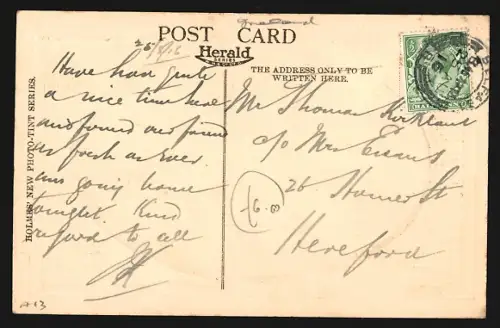 POST CARD
Herald
SERIES
THE ADDRESS ONLY TO BE
WRITTEN HERE.
HOLMES' NEW PHOTO-TINT SERIES.
Have had quite
a nice time here
and found our friend
as fresh as ever
am going home
tonight. Kind
regard to all
Mr Thomas
Kirkland
c/o Mrs Evans
26 Homer St
Hereford